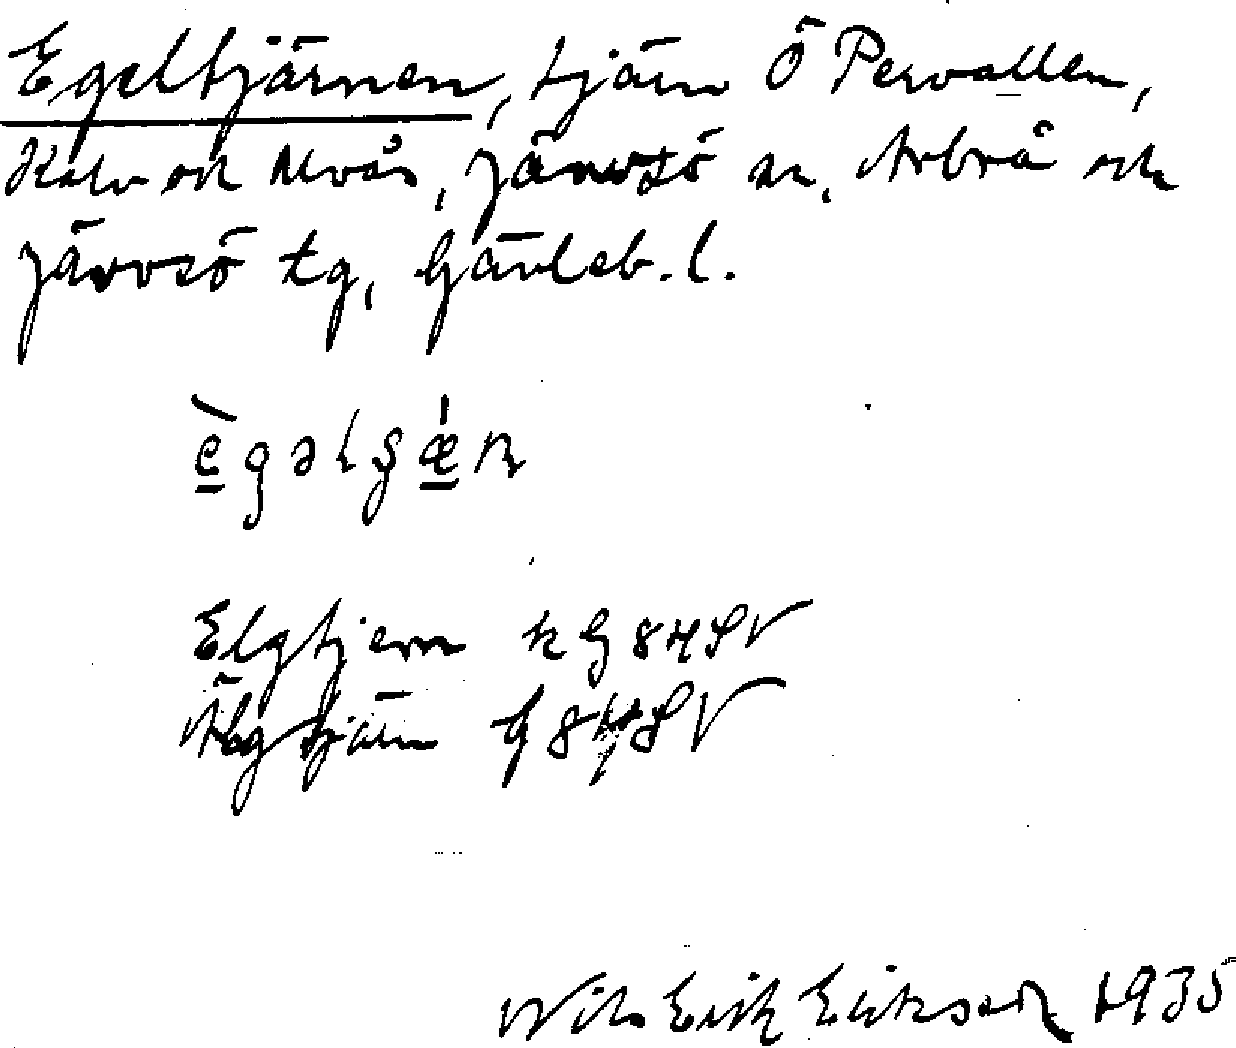 Egeltjärnen, tjärn Ö Pervallen,
och Järvsö sn, Arbrå och
Järvsö tg, Gävleb. l.
Elgtjern k G 84 SV
Älgtjärn G 84 SV
Nils Erik Erikson 1935